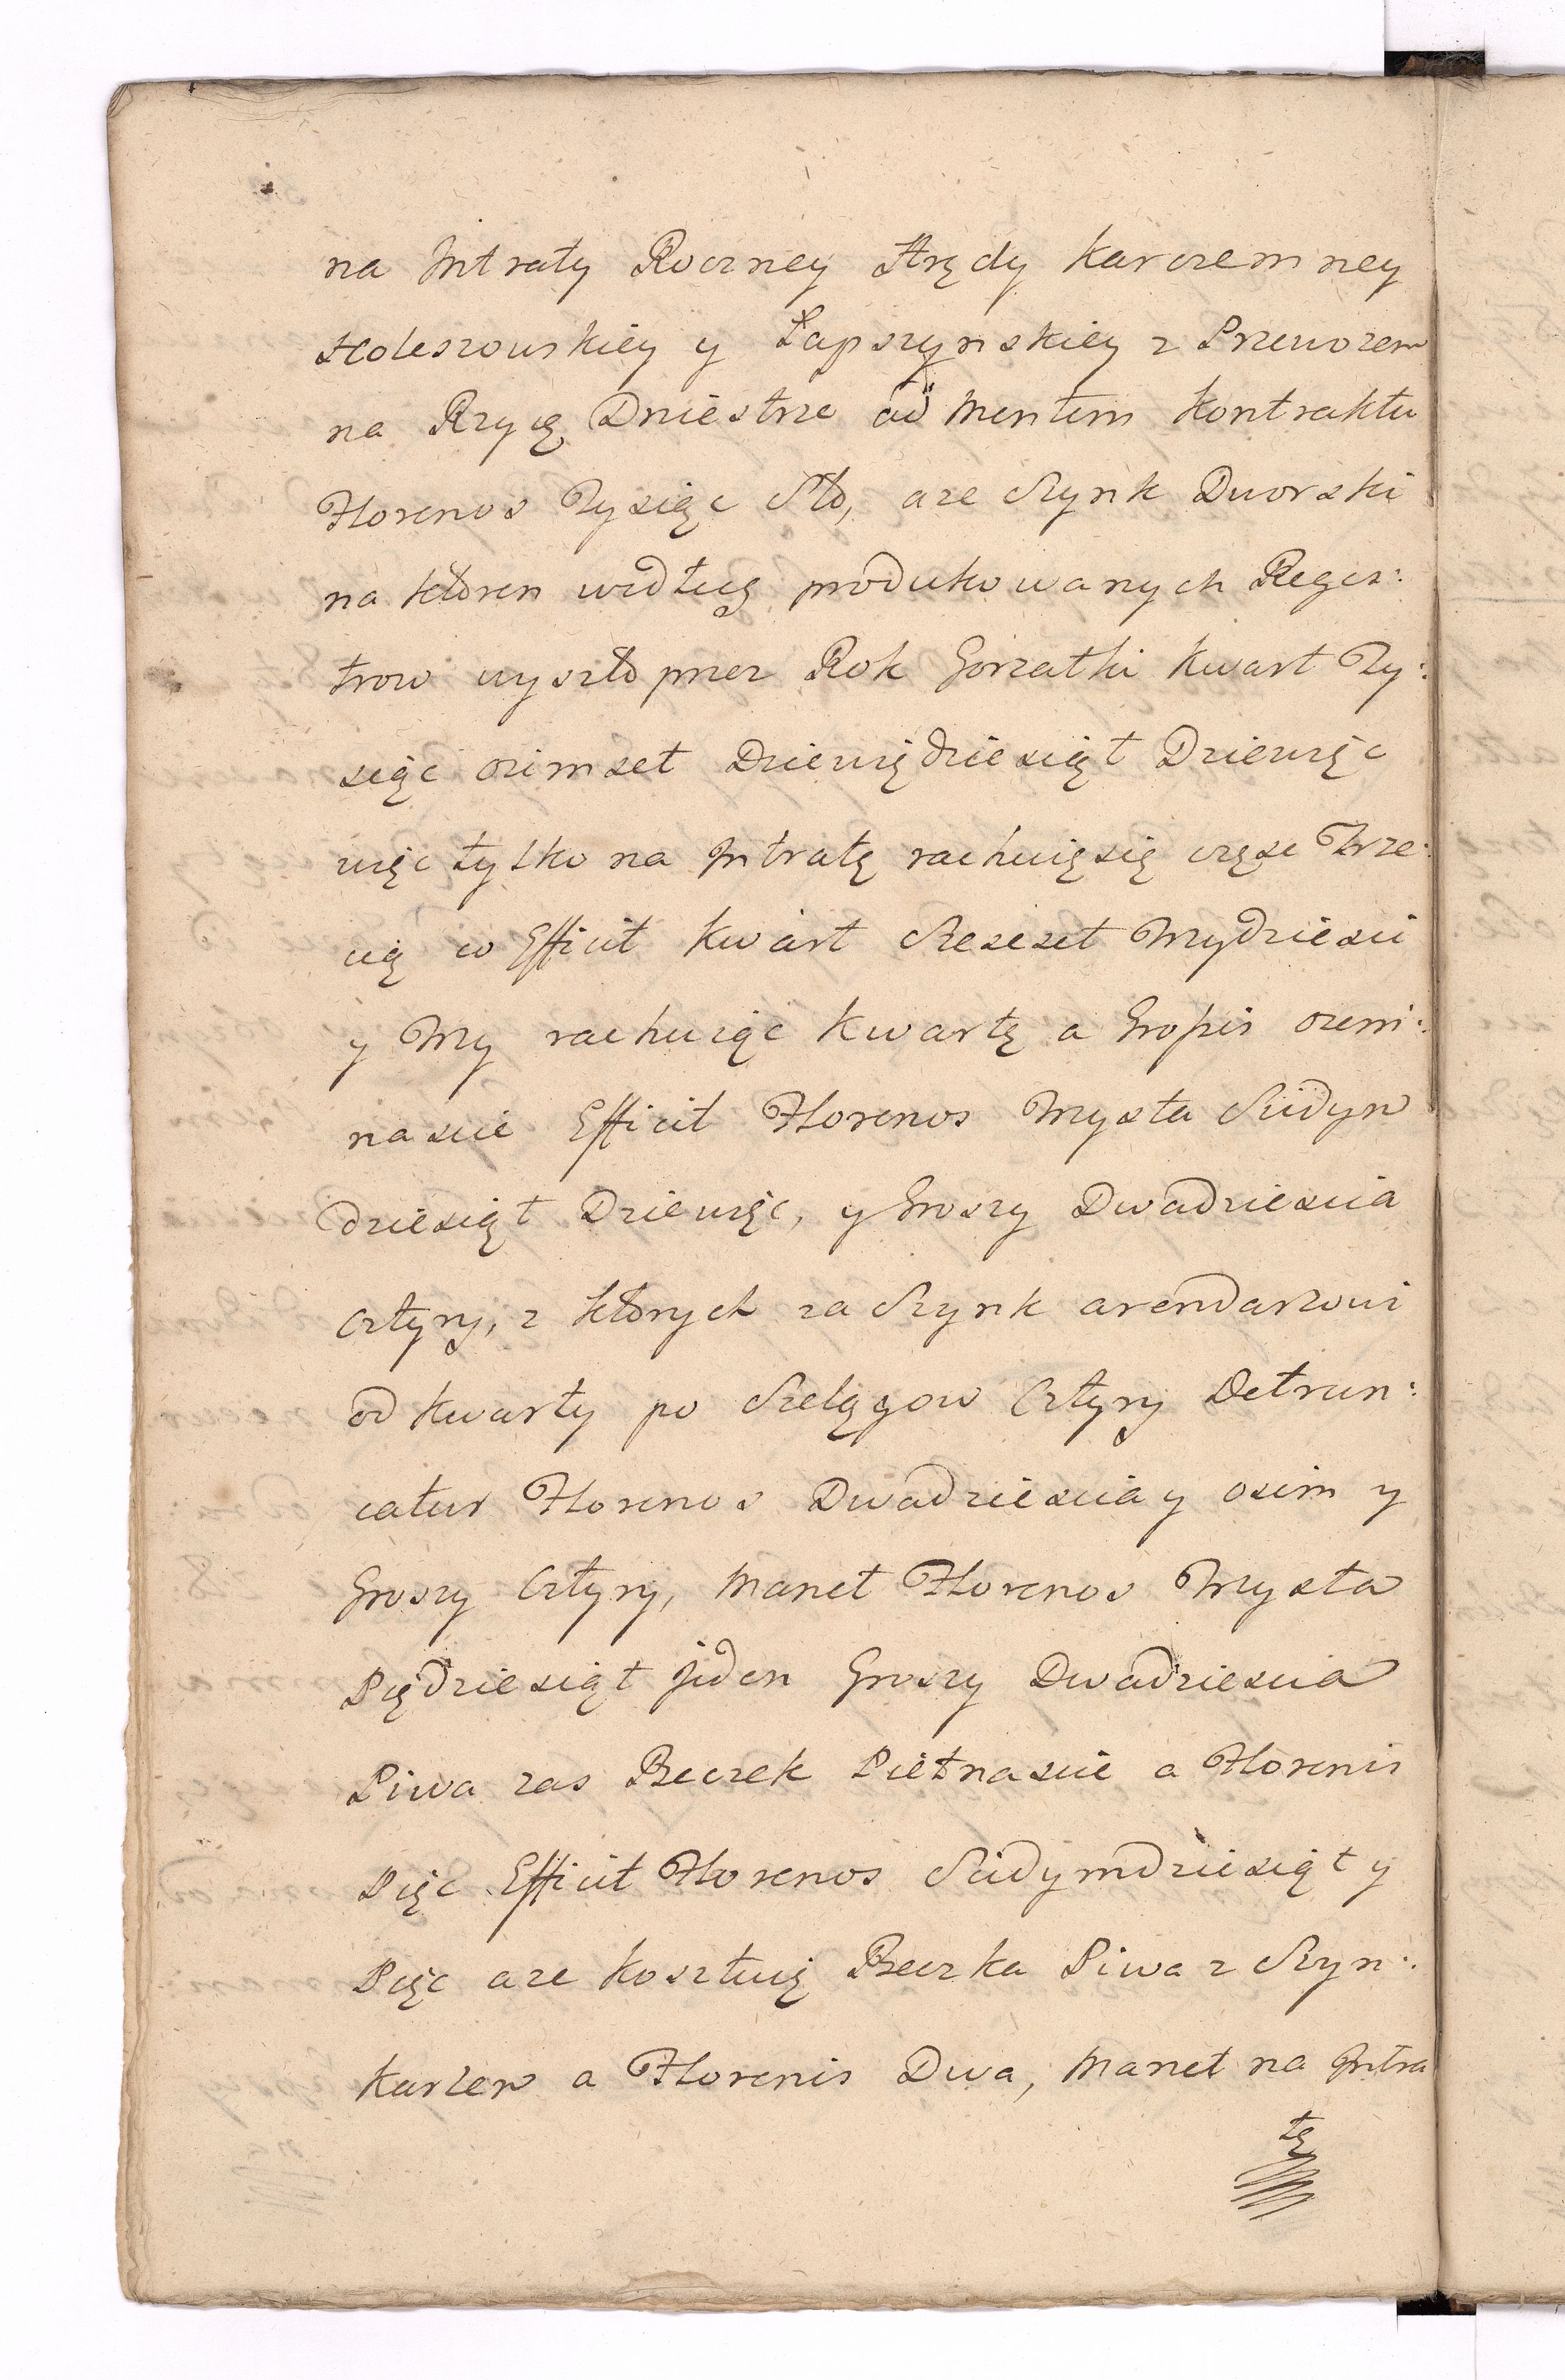 na Intraty Roczney Arędy Karczemney
Holeszowskiey y Łapszynskiey z Przewozem
na Rzycę Dniestrze ad mentem Kontraktu
Florenos Tysiąc Sto, aże Szynk Dworski
na ktoren według produkowanych Reges:
trow wyszło przez Rok Gorzałki Kwart Ty:
siąc osimset Dziewiędziesiąt Dziewięc
więc tylko na Intratę rachuię się częsc Trze:
cią co Efficit Kwart Szesset Trzydziesci
y Trzy rachuiąc Kwartę a Grosis osim:
nascie Efficit Florenos Trzysta Siedym
dziesiąt Dziewięc, y Groszy Dwadziescia
Cztyry, z ktorych za Szynk arendarzowi
od Kwarty po Szelągow Cztyry Detrun:
catur Florenos Dwadziescia y osim y
Groszy Cztyry, Manet Florenos Trzysta
Piędziesiąt jeden Groszy Dwadziescia
Piwa zas Beczek Pietnascie a Florenis
Pięc Efficit Florenos Siedymdziesiąt y
Pięc aże kosztuię Beczka Piwa z Szyn:
karzem a Florenis Dwa, Manet na Intra
tę